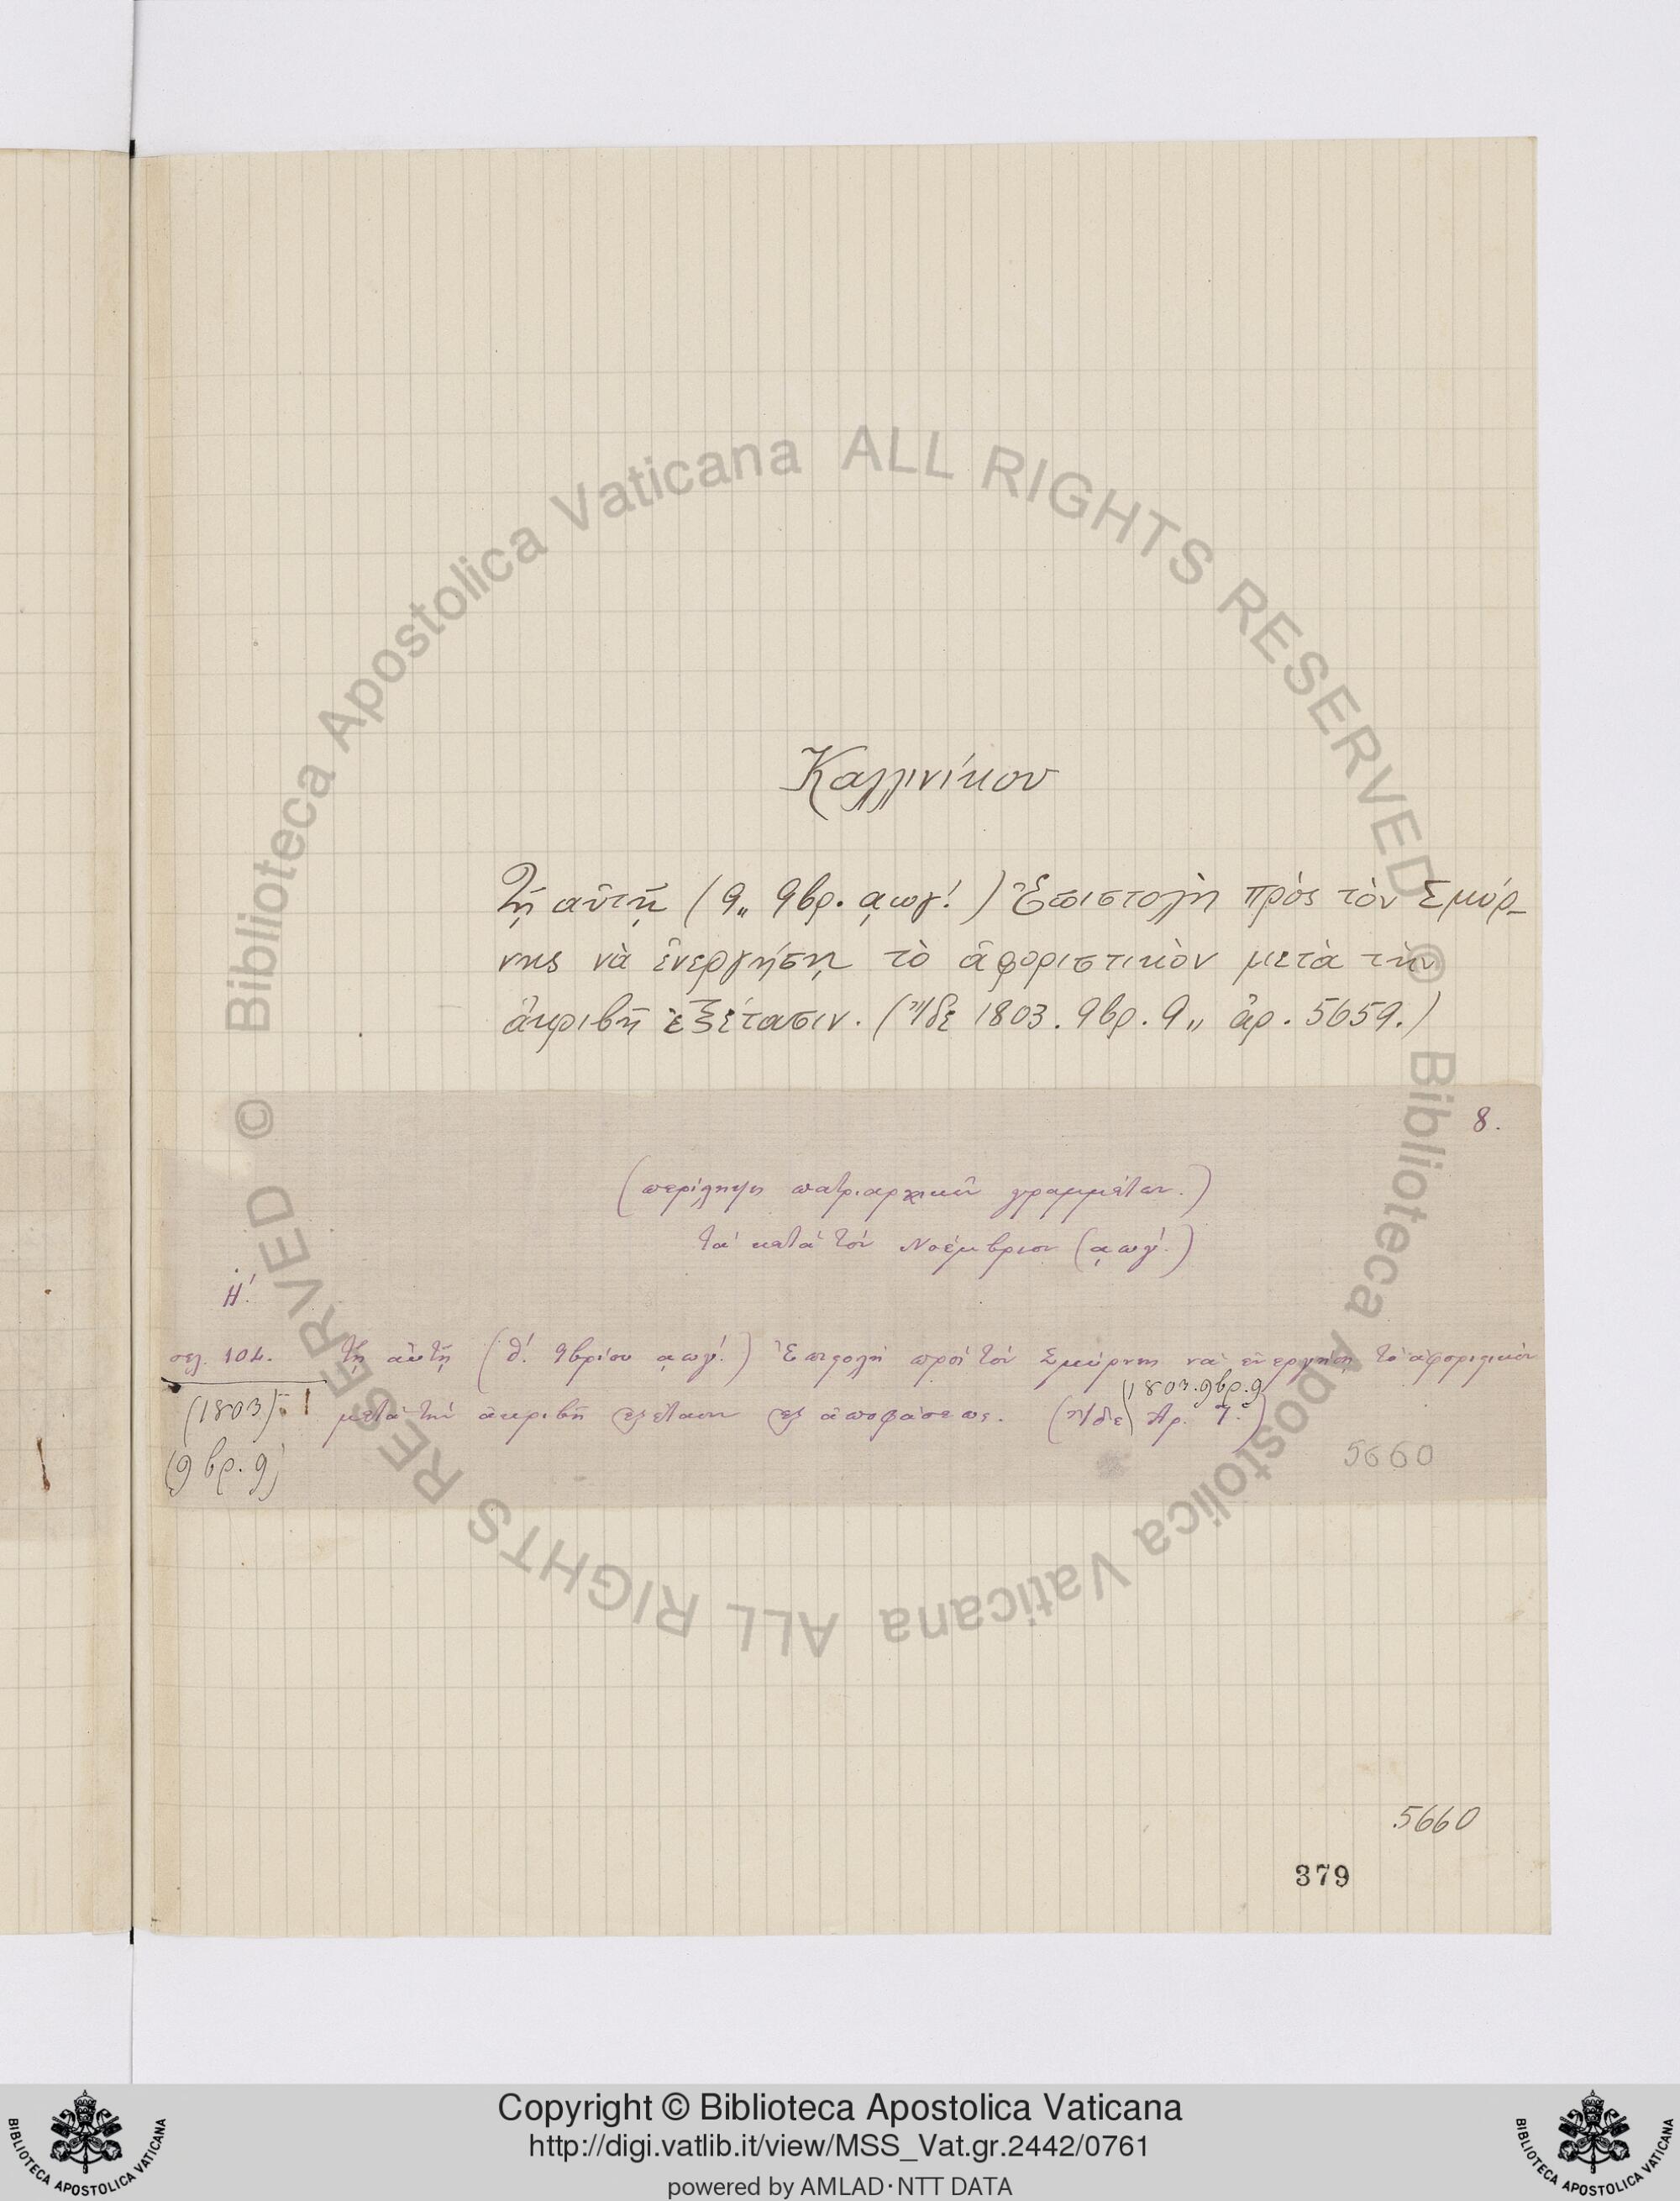 Καλλινίκου
Τῇ αὐτῇ (9„ 9βρ. ͵αωγ΄.) Ἐπιστολὴ πρὸς τὸν Σμύρ-
νης νὰ ἐνεργήσῃ τὸ ἀφοριστικὸν μετὰ τὴν
ἀκριβῆ ἐξέτασιν. (Ἴδε 1803. 9βρ. 9„ ἀρ. 5659.)
8.
(περίληψις πατριαρχικῶν γραμμάτων.)
τὰ κατὰ τὸν Νοέμβριον (͵αωγ΄.)
Η΄.
σελ. 104. τῇ αὐτῇ (θ΄. 9βρίου ͵αωγ΄.) Ἐπιστολὴ πρὸς τὸν Σμύρνης νὰ ἐνεργήσῃ τὸ ἀφοριστικὸν
(1803. 9βρ. 9
(1803) μετὰ τὴν ἀκριβῆ ἐξέτασιν ἐξ ἀποφάσεως. (Ἴδε Ἀρ. 7.)
(9βρ. 9)
5660
5660
379
© Biblioteca Apostolica Vaticana ALL RIGHTS RESERVED
© Biblioteca Apostolica Vaticana ALL RIGHTS RESERVED
Copyright © Biblioteca Apostolica Vaticana
http://digi.vatlib.it/view/MSS_Vat.gr.2442/0761
powered by AMLAD·NTT DATA
BIBLIOTECA APOSTOLICA VATICANA
BIBLIOTECA APOSTOLICA VATICANA